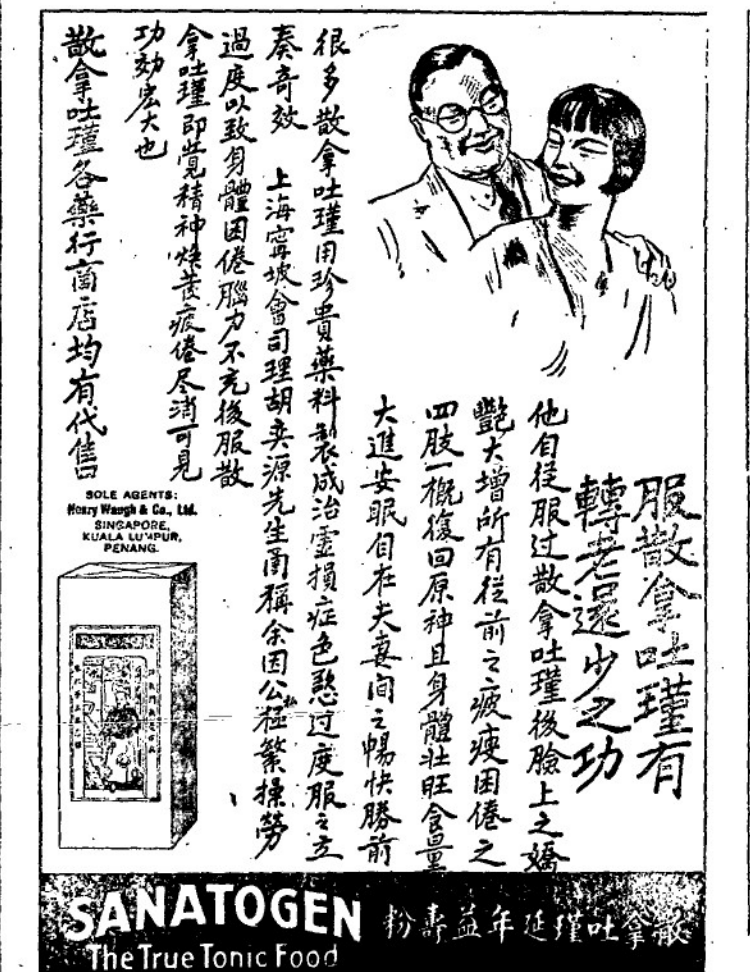 服散拿吐瑾有
轉老還少之功
他自從服过散拿吐瑾後臉上之嬌
艷大增所有從前之疲瘦困倦之
四肢一概復回原神且身體壯旺食量
大進安眠自在夫妻间之暢快勝前
很多散拿吐瑾用珍貴藥料製成治虛損症色慾过度服之立
奏奇效 上海寗坡會司理胡奕源先生函稱余因公私極繁操勞
過度以致身體困倦腦力不充後服散
拿吐瑾即覚精神焕發疲倦尽消可見
功効宏大也
散拿吐瑾各藥行啇店均有代售
SOLE AGENTS:
Henry Waugh & Co., Ltd.
SINGAPORE,
KUALA LUMPUR,
PENANG.
SANATOGEN
The True Tonic Food
散拿吐瑾延年益壽粉